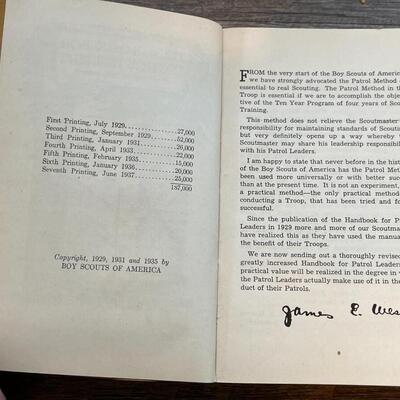 First Printing, July 1929 27,000
Second Printing, September 1929 52,000
Third Printing, January 1931 26,000
Fourth Printing, April 1933 22,000
Fifth Printing, February 1935 15,000
Sixth Printing, January 1936 20,000
Seventh Printing, June 1937 25,000
187,000
Copyright, 1929, 1931 and 1935 by
BOY SCOUTS OF AMERICA
FROM the very start of the Boy Scouts of America
we have strongly advocated the Patrol Method
essential to real Scouting. The Patrol Method in th
Troop is essential if we are to accomplish the objec
tive of the Ten Year Program of four years of Sco
Training.
This method does not relieve the Scoutmaster
responsibility for maintaining standards of Scouting
but very definitely opens up a way whereby
Scoutmaster may share his leadership responsibili
with his Patrol Leaders.
I am happy to state that never before in the histo
of the Boy Scouts of America has the Patrol Meth
been used more universally or with better succ
than at the present time. It is not an experiment,
a practical method—the only practical method
conducting a Troop, that has been tried and fo
successful.
Since the publication of the Handbook for Pat
Leaders in 1929 more and more of our Scoutma
have realized this as they have used the manua
the benefit of their Troops.
We are now sending out a thoroughly revised
greatly increased Handbook for Patrol Leaders
practical value will be realized in the degree in w
the Patrol Leaders actually make use of it in the
duct of their Patrols.
James E. Wes